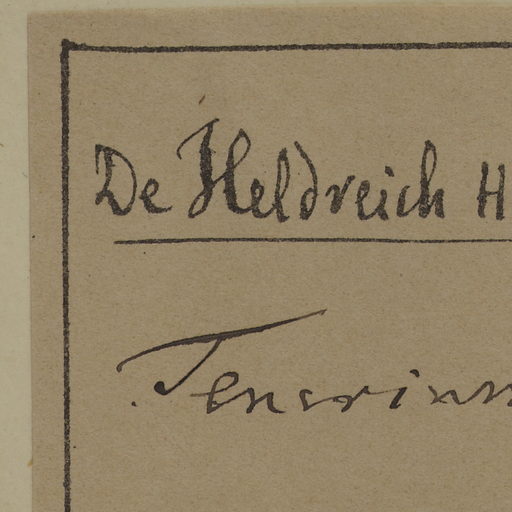 De Heldreich H
Teucrium